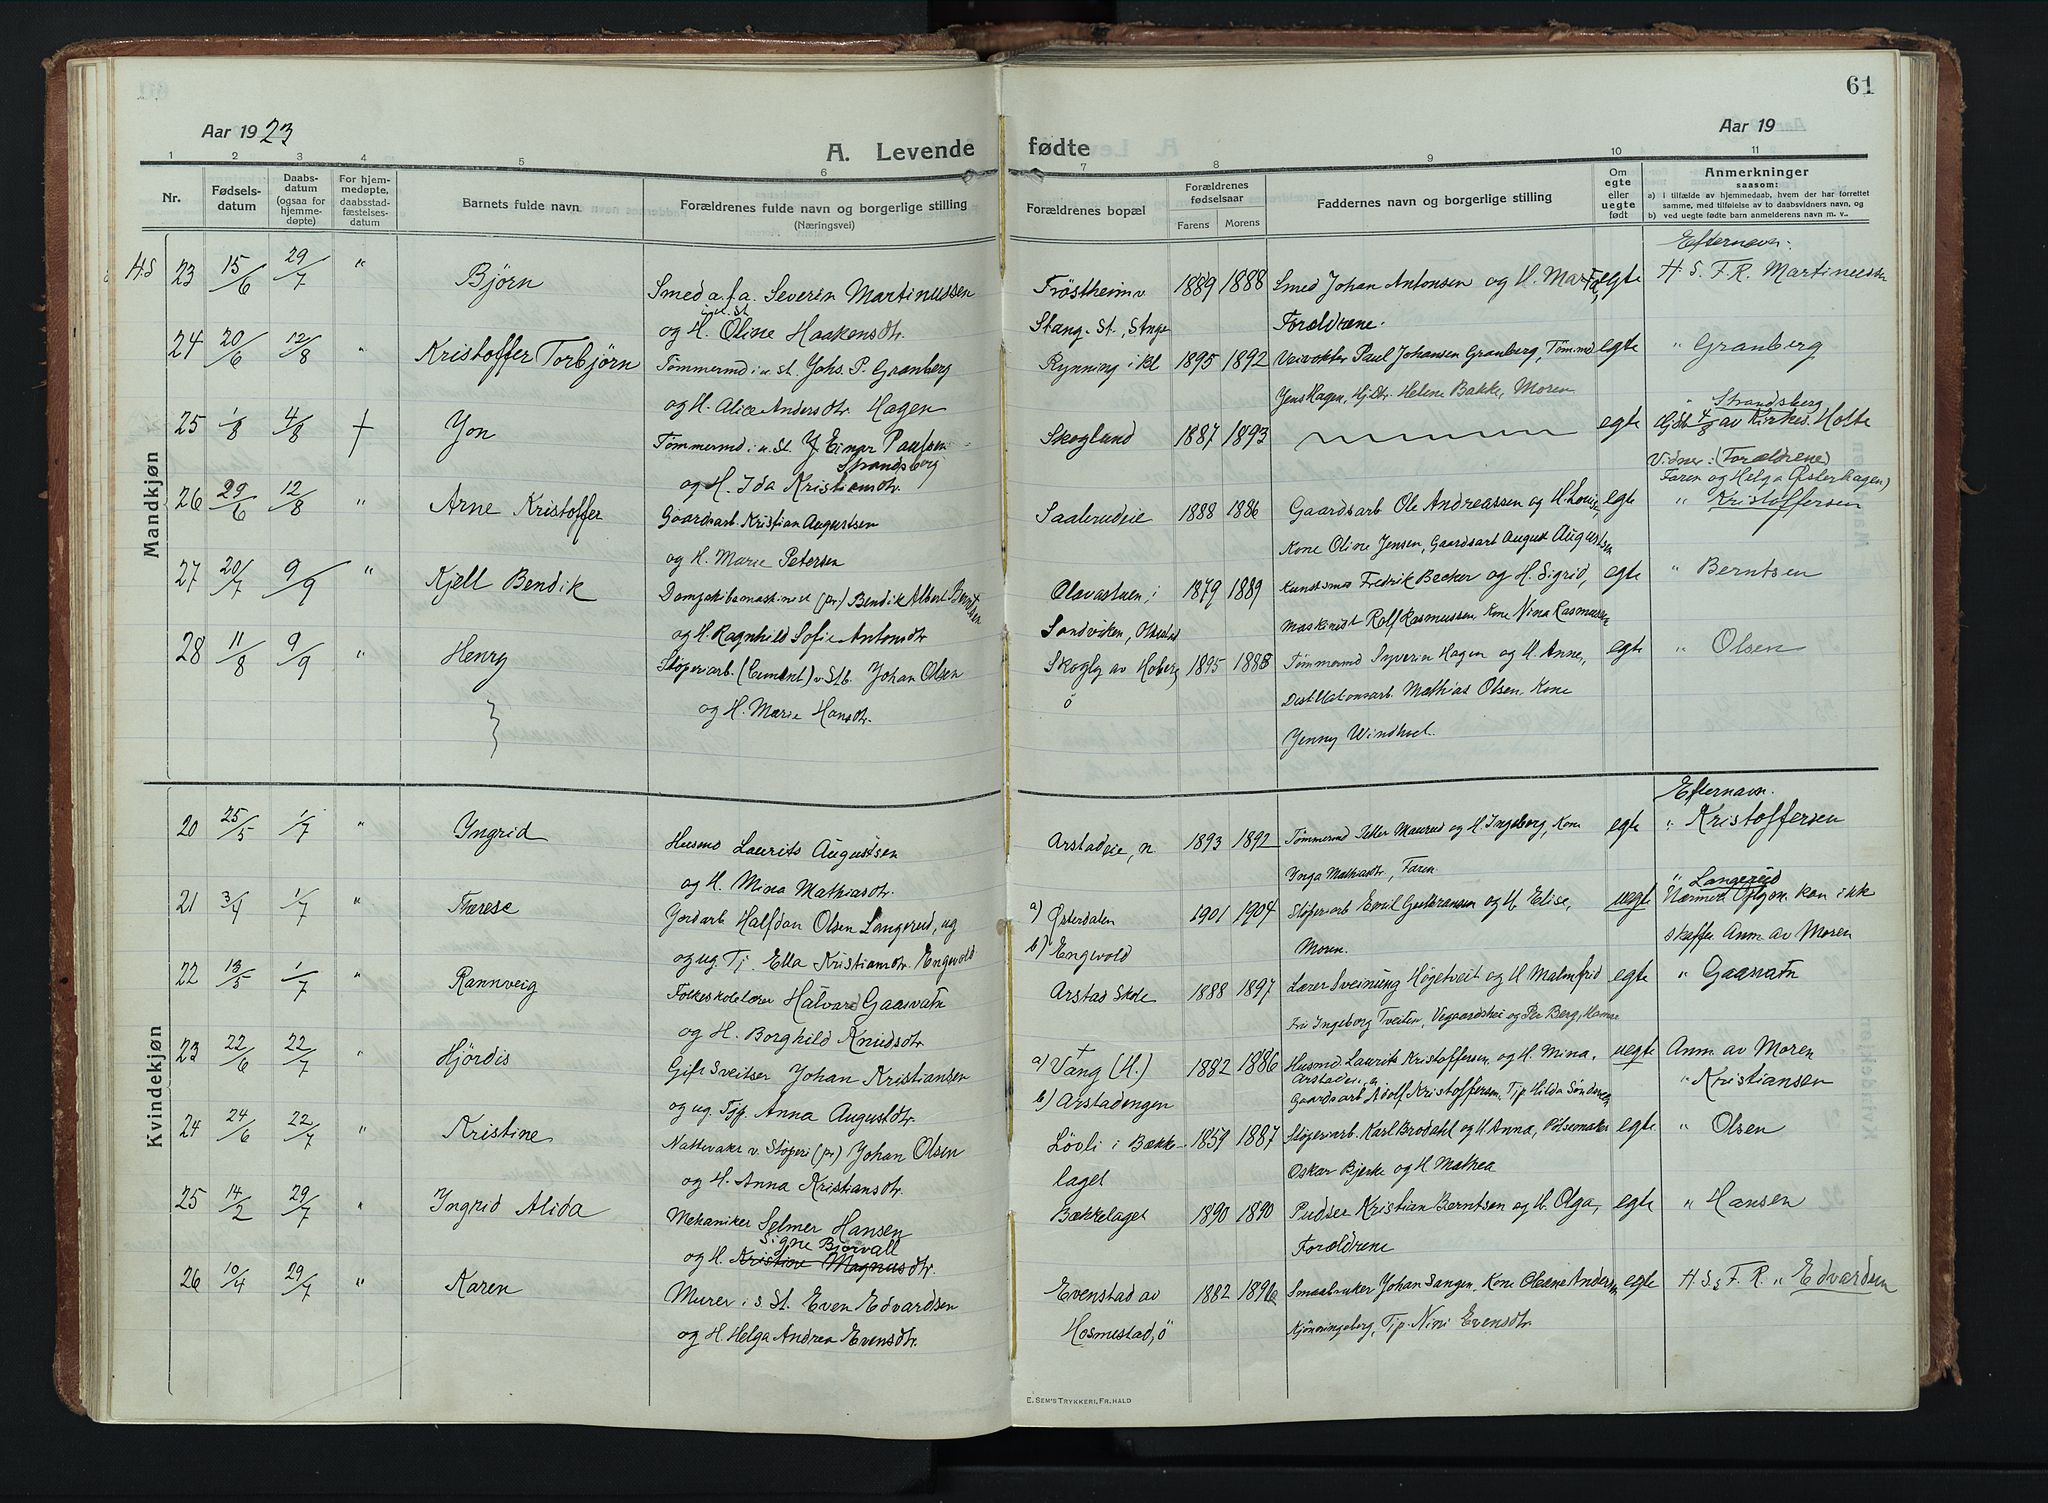 61
Aar 1923
A. Levende fødte
Aar 19
1 2 3 4 5 6 7 8 9 10 11
Nr.
Fødselsdatum
Daabsdatum (ogsaa for hjemmedøpte)
For hjemmedøpte, daabsstadfæstelsesdatum
Barnets fulde navn
Forældrenes fulde navn og borgerlige stilling
(Næringsvei)
Forældrenes bopæl
Forældrenes fødselsaar
Farens Morens
Faddernes navn og borgerlige stilling
Om egte eller uegte født
Anmerkninger
saasom:
a) I tilfælde av hjemmedaab, hvem der har forrettet
samme, med tilføielse av to daabsvidners navn, og
b) ved uegte fødte barn anmelderens navn m. v..
Mandkjøn
Efternavn.
H.S 23 15/6 29/7 " Bjørn Smed a.f.a. Severin Martinussen Frøstheim v 1889 1888 Smed Johan Antonsen og H. Marta, egte H. S. F. R. Martinussen
og H. Oline Haakensdtr. Stang. St., Stange Forældrene.
24 20/6 12/8 " Kristoffer Torbjørn Tømmermd i u St. Johs. P. Granberg Rynning i kl 1895 1892 Veivokter Paul Johansen Granberg, Tømmermd egte " Granberg
og H. Alice Andersdtr. Hagen Jens Hagen, Hjdtr. Helene Bakke, Moren
" Strandsberg
25 1/8 4/8 + Jon Tømmermd i u. St. Einar Paulsen Skoglund 1887 1893 egte Hjdb 4/8 av Kirkes. Holte
Strandsberg
og H. Ida Kristiansdtr. Vidner: (Forældrene)
Faren og Helga Østerhagen)
26 29/6 12/8 " Arne Kristoffer Gaardsarb. Kristian Augustsen Saalerudeie 1888 1886 Gaardsarb Ole Andreassen og H. Louise, egte " Kristoffersen
og H. Marie Petersen Kone Oline Jensen, Gaardsarb August Augustsen
27 20/7 9/9 " Kjell Bendik Dampskibsmaskinist (pr.) Bendik Albert Berntsen Olavastuen, i 1879 1889 Kunstsmed Fredrik Becker og H. Sigrid, egte " Berntsen
og H. Ragnhild Sofie Antonsdtr Sandviken, Maskinist Rolf Rasmussen, Kone Nina Rasmussen
28 11/8 9/9 " Henry Støperiarb. (Cement) v Stb. Johan Olsen Skogly av Hoberg 1895 1888 Tømmermd Syverin Hagen og H. Anne, egte " Olsen
og H. Marie Hansdtr. ö Destillationsarb. Mathias Olsen, Kone
Jenny Windhol.
Kvindekjøn
Efternavn.
20 25/5 1/7 " Yngrid Husmd Laurits Augustsen Arstadeie, n. 1893 1892 Tømmermd Petter Maurud og H. Ingeborg, Kone egte " Kristoffersen
og H. Mina Mathiasdtr. Ynga Mathiasdtr, Faren.
" Langerud
21 3/4 1/7 " Therese Gardarb Halfdan Olsen Langerud, ug a) Østerdalen 1901 1904 Støperiarb Emil Gulbransen og H. Elise, uegte Nærmed Oplysn. kan ikk
og ug. Tj. Ella Kristiansdtr. Engevold b) Engevold Moren. skaffes. Anm. av Moren
22 13/5 1/7 " Rannveig Folkeskolelærer Halvard Gaasvatn Arstad Skole 1888 1897 Lærer Sveinung Høgetveit og H Malmfrid egte " Gaasvatn
og H. Borghild Knudsdtr. Frk Ingeborg Tveiten, Vegaardshei og Per Berg, Hamar
23 22/6 22/7 " Hjördis Gift Sveitser Johan Kristiansen a) Vang (H.) 1882 1886 Husmd Laurits Kristoffersen og H. Mina, uegte Anm. av Moren
Arstadeie n.
og ug. Tjp. Anna Augustdtr. b) Arstadengen Gaardsarb Adolf Kristoffersen, Tjp Hilda Søndreeie " Kristiansen
24 24/6 22/7 " Kristine Nattevakt v. Støperi (pr.) Johan Olsen Løvli i Bække- 1859 1887 Støperiarb. Karl Brodahl og H Anna, Pølsemaker egte " Olsen
og H. Anna Kristiansdtr. laget Oskar Bjerke og H Mathea
25 14/2 29/7 " Yngrid Alida Mekaniker Selmer Hansen Bækkelaget 1890 1890 Pudser Kristian Berntsen og H. Olga, egte " Hansen
Signe Bjørvall
og H. Kristine Magnusdtr. Forældrene
26 10/4 29/7 " Karen Murer i s. St. Even Edvardsen Evenstad av 1882 1896 Smaabruker Johan Sangen, Kone Olene Andersen egte H. S. F. R. " Edvardsen
og H. Helga Andrea Evensdtr. Hosmestad, ö Kjønningeberg, Tjp. Nini Evensdtr.
E. SEM'S TRYKKERI, FR. HALD